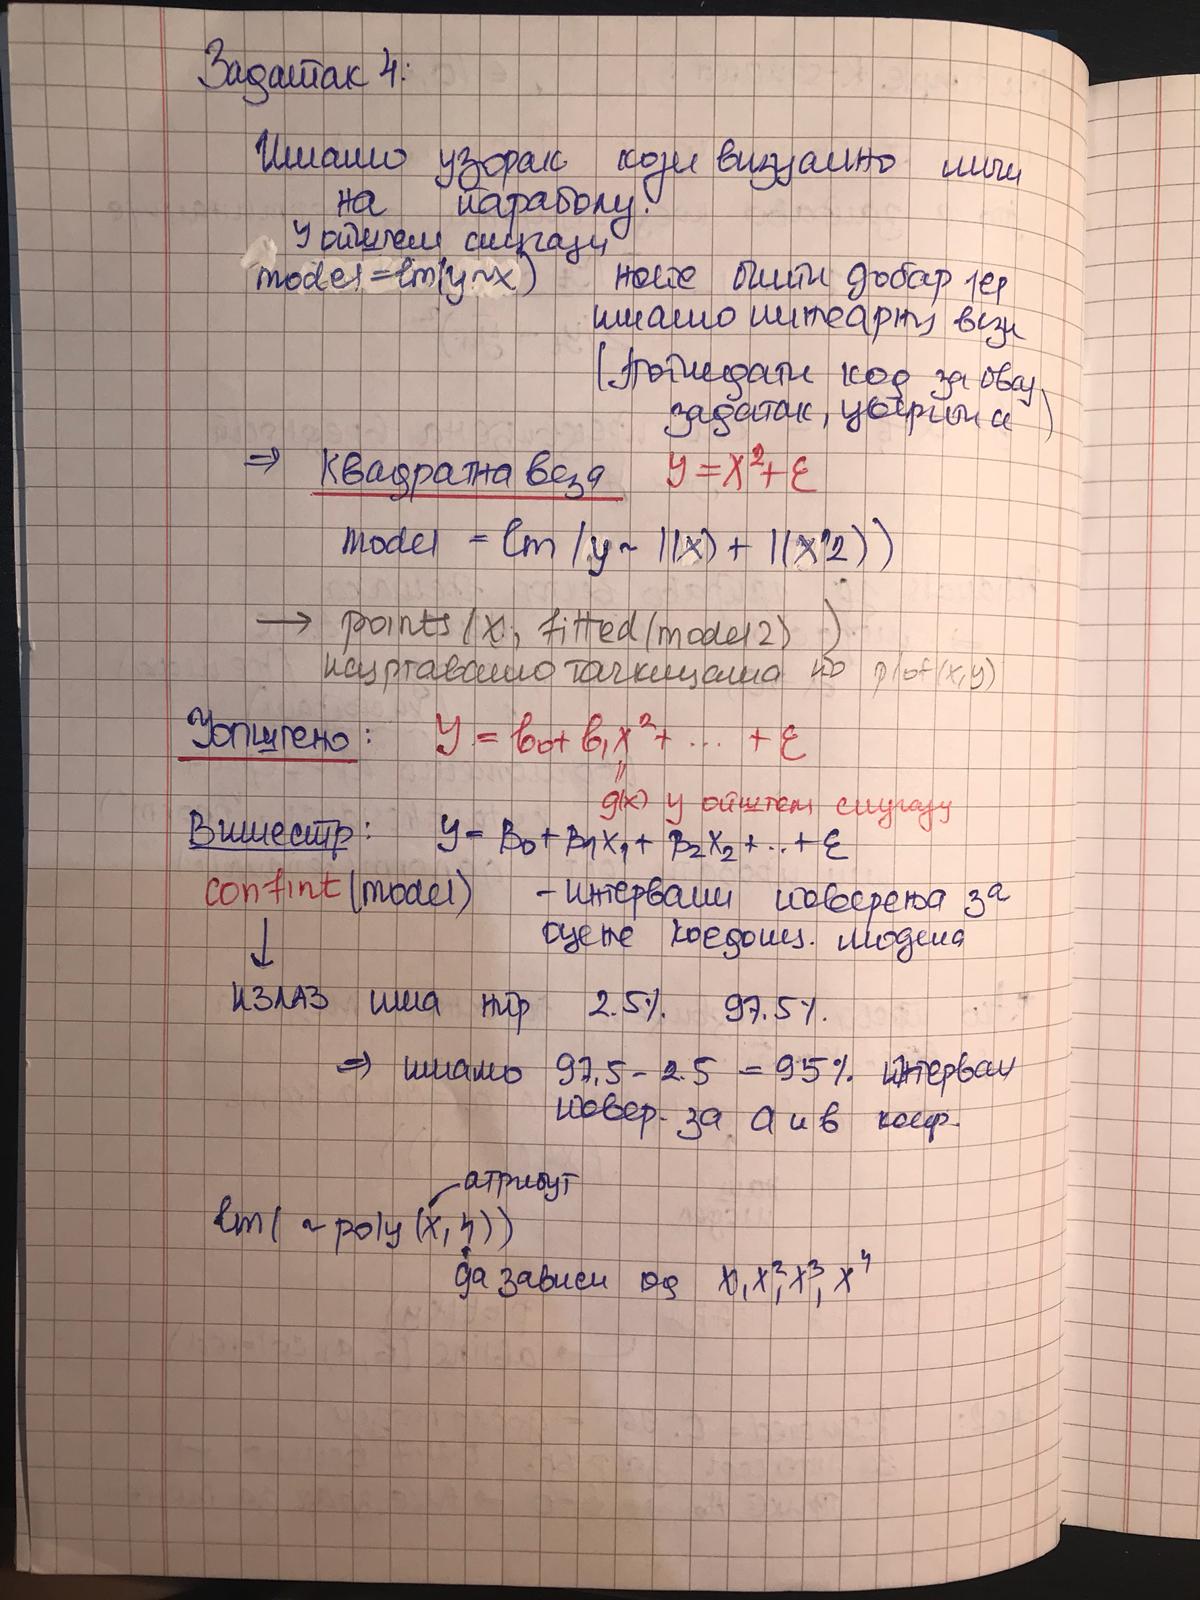 Задатак 4:
Имамо узорак који визуелно личи
на параболу.
У општем случају
model = lm(y~x) неће бити добар јер
имамо линеарну везу
(Погледати код за овај
задатак, цвертица)
=> Квадратна веза y = x² + ε
model = lm(y ~ I(x) + I(x^2))
→ points(x, fitted(model2))
исцртавамо тачкицама по plot(x,y)
Уопштено: y = b₀ + b₁x² + ... + ε
"
g(x) у општем случају
Вишестр: y = β₀ + β₁x₁ + β₂x₂ + ... + ε
confint(model) - интервали поверења за
оцене коефиц. модела
↓
ИЗЛАЗ има нпр 2.5% 97.5%
=> имамо 97,5 - 2.5 = 95% интервал
повер. за a и b коеф.
атрибут
lm( ~ poly(x, 4))
да зависи од x, x², x³, x⁴